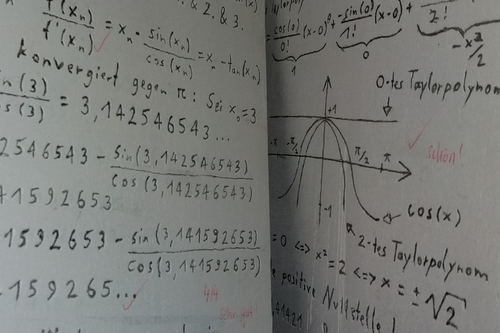 & 2. & 3.
f(xₙ)/f'(xₙ) = xₙ - sin(xₙ)/cos(xₙ) = xₙ - tan(xₙ)
konvergiert gegen π: Sei x₀ = 3
sin(3)/cos(3) = 3,142546543...
2546543 - sin(3,142546543)/cos(3,142546543)
41592653
1592653 - sin(3,141592653)/cos(3,141592653)
159265...
4/4
Sehr gut!
Taylorpolynom
= cos(0)/0! (x-0)⁰ + -sin(0)/1! (x-0) +
2!
1
0
-x²/2
0-tes Taylorpolynom
+1
schön!
-π
-π/2
π/2
π
-1
cos(x)
2-tes Taylorpolynom
= 0 <=> x² = 2 <=> x = ±√2
positive Nullstelle
41421